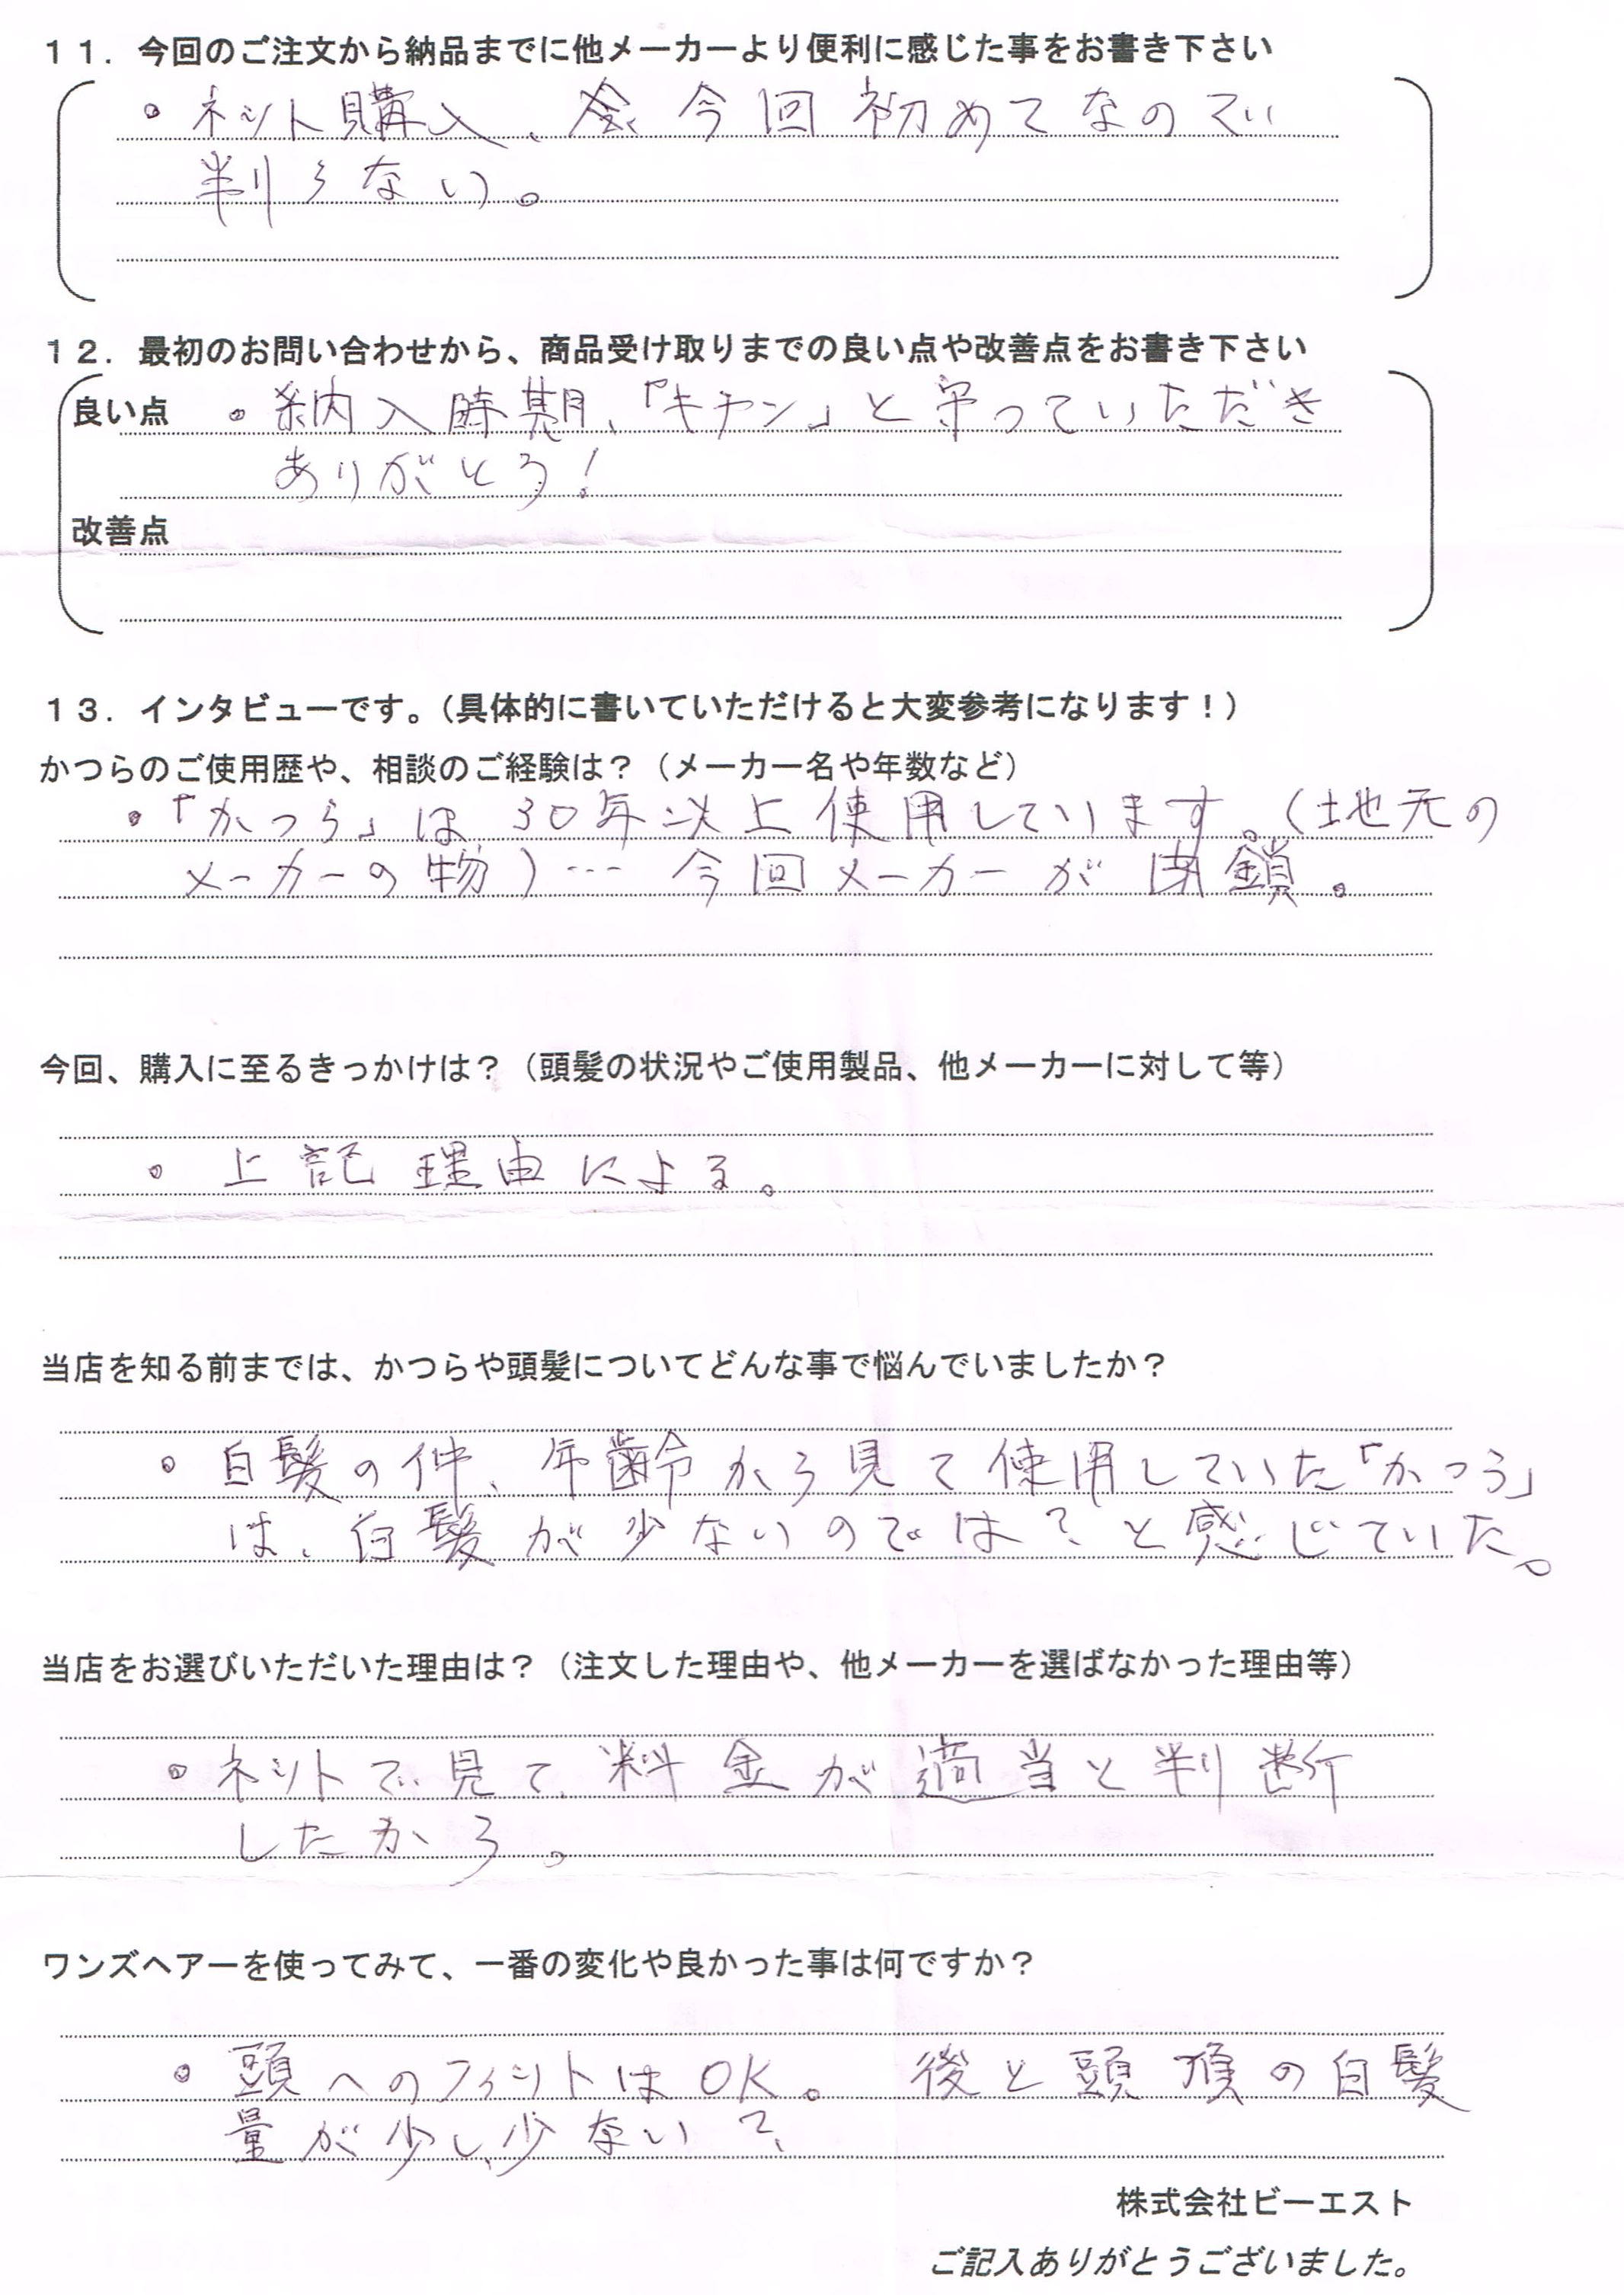 １１．今回のご注文から納品までに他メーカーより便利に感じた事をお書き下さい
・ネット購入、今回初めてなので
判らない。
１２．最初のお問い合わせから、商品受け取りまでの良い点や改善点をお書き下さい
良い点 ・納入時期、「キチン」と守っていただき
ありがとう！
改善点
１３．インタビューです。（具体的に書いていただけると大変参考になります！）
かつらのご使用歴や、相談のご経験は？（メーカー名や年数など）
・「かつら」は30年以上使用しています。（地元の
メーカーの物）… 今回メーカーが閉鎖。
今回、購入に至るきっかけは？（頭髪の状況やご使用製品、他メーカーに対して等）
・上記理由による。
当店を知る前までは、かつらや頭髪についてどんな事で悩んでいましたか？
・白髪の件、年齢から見て使用していた「かつら」
は、白髪が少ないのでは？と感じていた。
当店をお選びいただいた理由は？（注文した理由や、他メーカーを選ばなかった理由等）
・ネットで見て、料金が適当と判断
したから。
ワンズヘアーを使ってみて、一番の変化や良かった事は何ですか？
・頭へのフィットはOK。 後と頭頂の白髪
量が少し少ない？
株式会社ビーエスト
ご記入ありがとうございました。